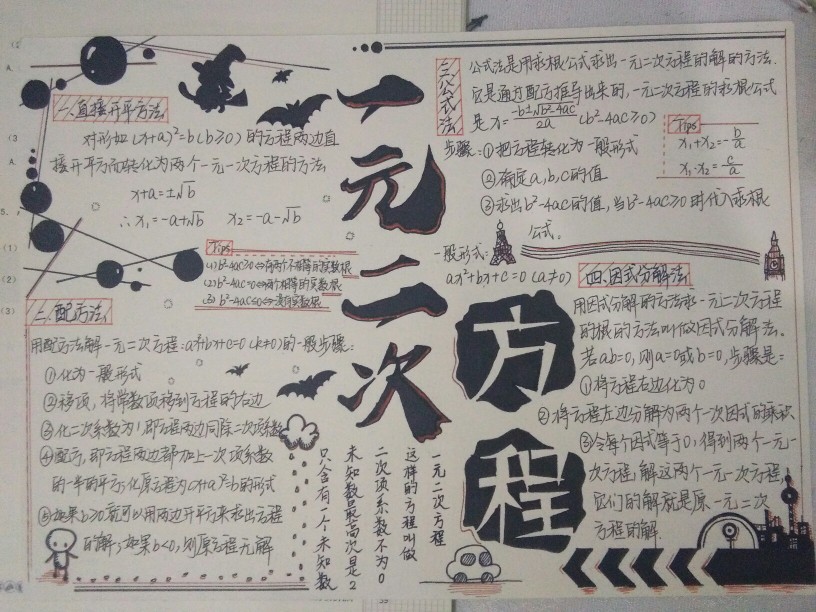 一元二次
方程
一.直接开平方法
对形如(x+a)²=b(b≥0)的方程两边直
接开平方而转化为两个一元一次方程的方法
x+a=±√b
∴x₁=-a+√b x₂=-a-√b
Tips
(1)b²-4ac≥0⇔有两个不相等的实数根
(2)b²-4ac=0⇔两个相等的实数根
(3)b²-4ac≤0⇔没有实数根
二.配方法
用配方法解一元二次方程:
的一般步骤:
①化为一般形式
②移项,将常数项移到方程的右边
③化二次系数为1,即方程两边同除二次项系数
④配方,即方程两边都加上一次项系数
的一半的平方;化原方程为(x+a)²=b的形式
⑤如果b≥0就可以用两边开平方来求出方程
的解;如果b<0,则原方程无解
只含有一个未知数
未知数最高次是2
二次项系数不为0
这样的方程叫做
一元二次方程
三.公式法
公式法是用求根公式求出一元二次方程的解的方法.
它是通过配方推导出来的,一元二次方程的求根公式
是x=(-b±√b²-4ac)/2a (b²-4ac≥0)
Tips
x₁+x₂=-b/a
x₁·x₂=c/a
步骤:①把方程转化为一般形式
②确定a,b,c的值
③求出b²-4ac的值,当b²-4ac≥0时代入求根
公式.
一般形式:
ax²+bx+c=0(a≠0)
四.因式分解法
用因式分解的方法求一元二次方程
的根的方法叫做因式分解法.
若ab=0,则a=0或b=0,步骤是:
①将方程右边化为0
②将方程左边分解为两个一次因式的乘积
③令每个因式等于0,得到两个一元一
次方程,解这两个一元一次方程,
它们的解就是原一元二次
方程的解.